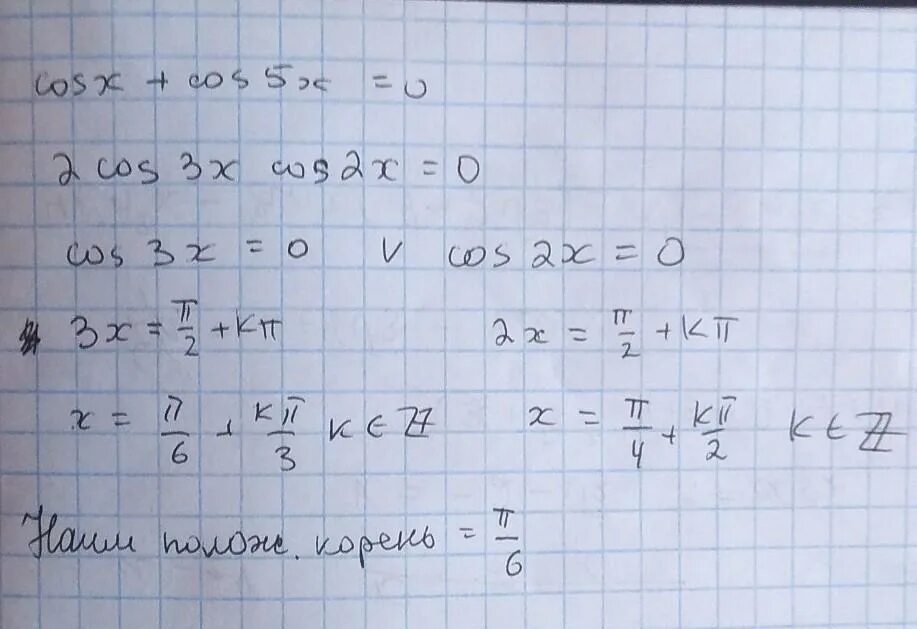 cos x + cos 5x = 0
2 cos 3x cos 2x = 0
cos 3x = 0 ∨ cos 2x = 0
3x = π/2 + kπ 2x = π/2 + kπ
x = π/6 + kπ/3 k ∈ ℤ x = π/4 + kπ/2 k ∈ ℤ
Наим полож. корень = π/6